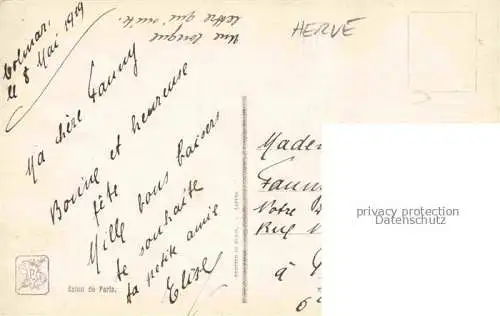 Colmar,
le 8 Mai, 1919
Une longue
lettre qui suit.
HERVÉ
Ma chère Fanny
Bonne et heureuse
fête
Mille bons baisers
te souhaite
ta petite amie
Elise
Salon de Paris.
Madem
Fann
Notre
Rue
à
privacy protection
Datenschutz